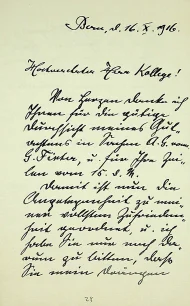 Bern, d. 16. X. 1916.
Hochverehrter Herr Kollege!
Von Herzen danke ich
Ihnen für die gütige
Durchsicht meines Gut-
achtens in Sachen A.G. vorm.
G. , u. für Ihre Zei-
len vom 15. d. M.
Damit ist nun die
Angelegenheit zu mei-
ner vollsten Zufrieden-
heit geordnet, u. ich
habe Sie nur noch da-
rum zu bitten, dass
Sie mein